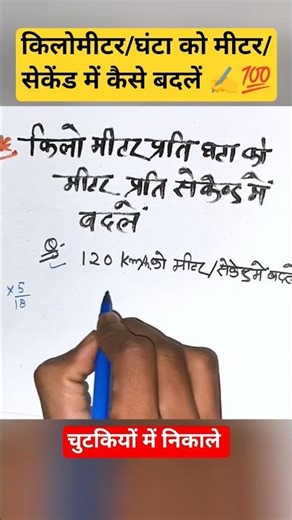 किलोमीटर/घंटा को मीटर/
सेकेंड में कैसे बदलें ✍️💯
किलो मीटर प्रति घंटा को
मीटर प्रति सेकैण्ड में
बदलें
Q. 120 km/h को मीटर/सेकेंड में बदलें
×5/18
चुटकियों में निकाले